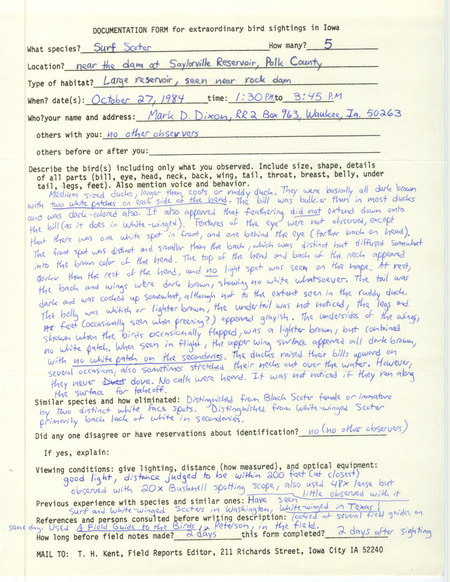 DOCUMENTATION FORM for extraordinary bird sightings in Iowa
What species? Surf Scoter How many? 5
Location? near the dam at Saylorville Reservoir, Polk County
Type of habitat? Large reservoir, seen near rock dam
When? date(s): October 27, 1984 time: 1:30 P.M. to 3:45 P.M
Who? your name and address: Mark D. Dixon, RR2 Box 963, Waukee, Ia. 50263
others with you: no other observers
others before or after you:
Describe the bird(s) including only what you observed. Include size, shape, details
of all parts (bill, eye, head, neck, back, wing, tail, throat, breast, belly, under
tail, legs, feet). Also mention voice and behavior.
Medium sized ducks, larger than coots or ruddy duck. They were basically all dark brown
with two white patches on each side of the head. The bill was bulkier than in most ducks
and was dark-colored also. It also appeared that feathering did not extend down onto
the bill (as it does in white-winged). Features of the eye were not observed, except
that there was one white spot in front, and one behind the eye (farther back on head).
The front spot was distinct and smaller than the back, which was distinct but diffused somewhat
into the brown color of the head. The top of the head and back of the neck appeared
darker than the rest of the head, and no light spot was seen on the nape. At rest,
the back and wings were dark brown, showing no white whatsoever. The tail was
dark and was cocked up somewhat, although not to the extent seen in the ruddy duck.
The belly was whitish or lighter brown, the undertail was not noticed, the legs and
feet (occasionally seen when preening?) appeared grayish. The undersides of the wings,
shown when the birds occasionally flapped, was a lighter brown, but contained
no white patch. When seen in flight, the upper wing surface appeared all dark brown,
with no white patch on the secondaries. The ducks raised their bills upward on
several occasions, also sometimes stretched their necks out over the water. However,
they never dove. No calls were heard. It was not noticed if they ran along
the surface for takeoff.
Similar species and how eliminated: Distinguished from Black Scoter female or immature
by two distinct white face spots. Distinguished from White-winged Scoter
primarily by lack of white in secondaries.
Did any one disagree or have reservations about identification? no (no other observers)
If yes, explain:
Viewing conditions: give lighting, distance (how measured), and optical equipment:
good light, distance judged to be within 200 feet (at closest)
observed with 20x Bushnell spotting scope, also used 48x lense but
little observed with it
Previous experience with species and similar ones: Have seen
Surf and White-winged Scoters in Washington, White-winged in Texas
References and persons consulted before writing description: looked at several field guides on
same day. Used A Field Guide to the Birds, by Peterson, in the field.
How long before field notes made? 2 days this form completed? 2 days after sighting
MAIL TO: T. H. Kent, Field Reports Editor, 211 Richards Street, Iowa City IA 52240